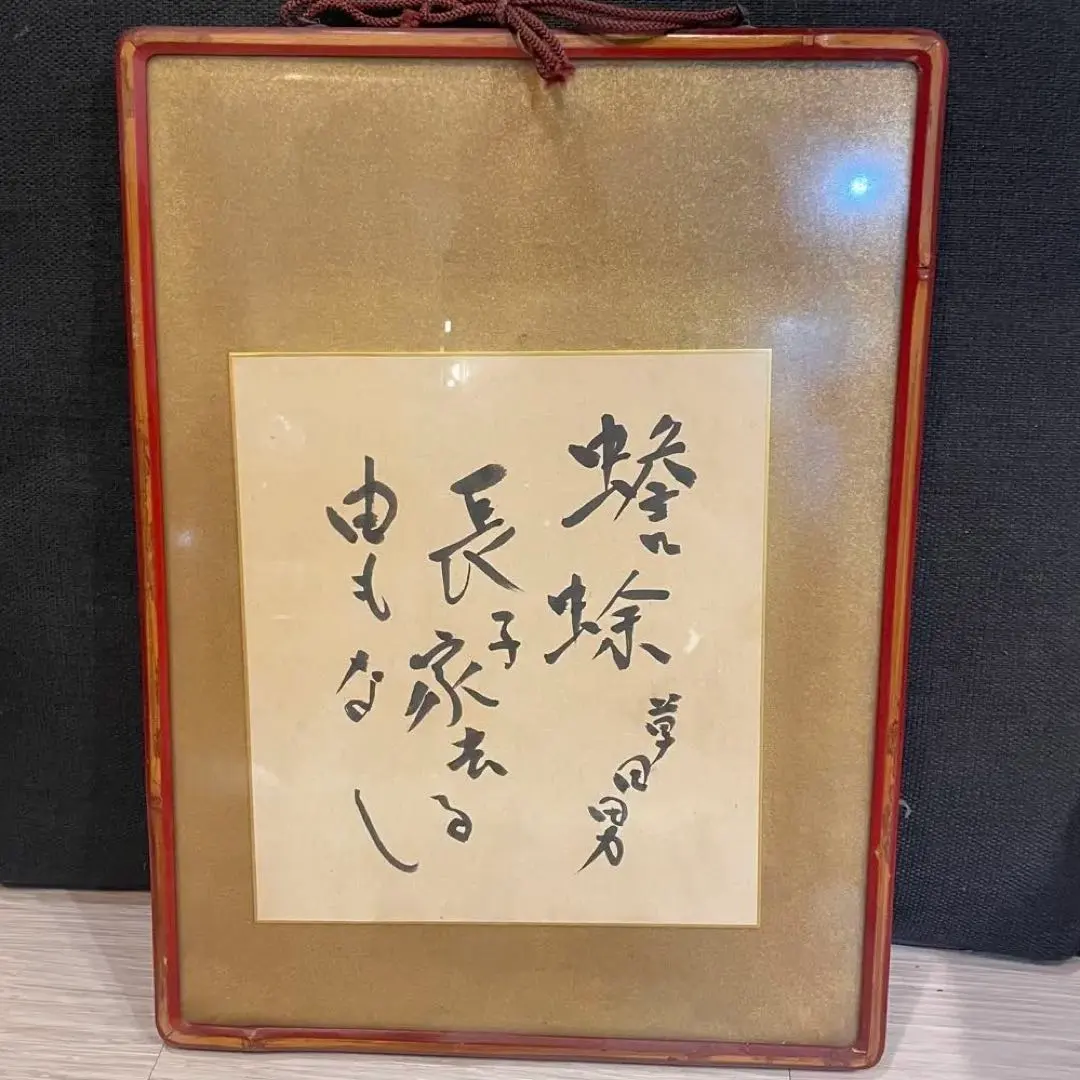 蟾蜍
長子家去る
由もなし
草田男